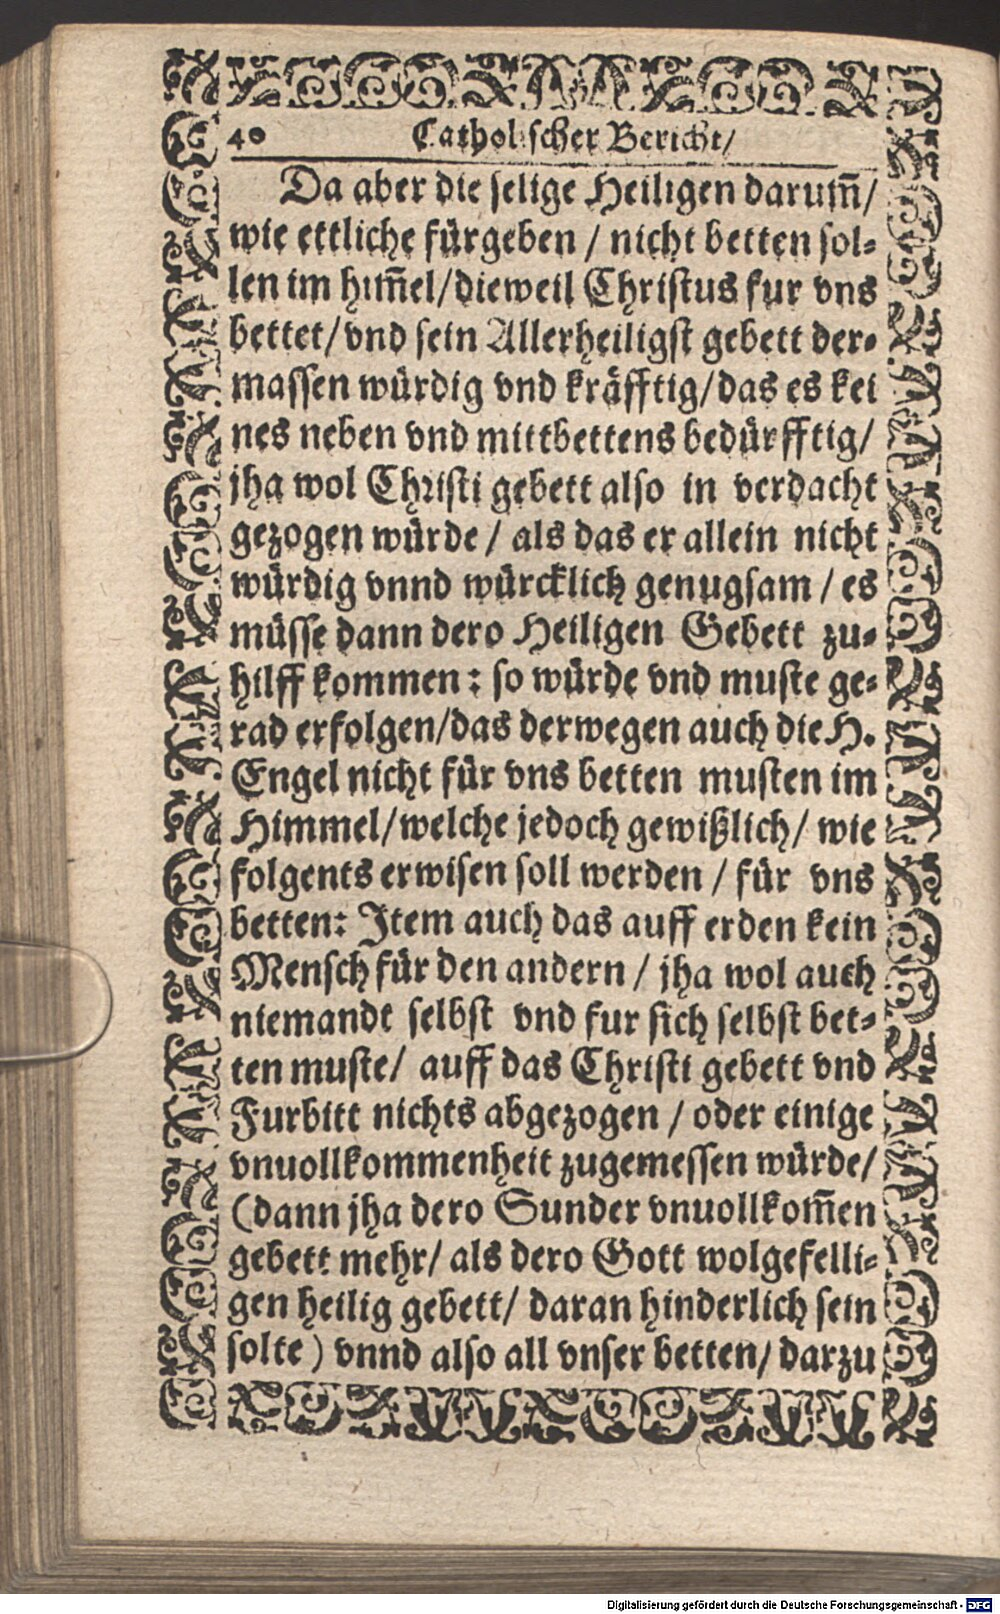 40 Catholischer Bericht/
Da aber die selige Heiligen darum̃/
wie ettliche fürgeben / nicht betten sol⸗
len im him̃el/dieweil Christus fur vns
bettet/vnd sein Allerheiligst gebett der⸗
massen würdig vnd kräfftig/das es kei
nes neben vnd mittbettens bedürfftig/
jha wol Christi gebett also in verdacht
gezogen würde / als das er allein nicht
würdig vnnd würcklich genugsam / es
müsse dann dero Heiligen Gebett zu⸗
hilff kommen: so würde vnd muste ge⸗
rad erfolgen/das derwegen auch die H.
Engel nicht für vns betten musten im
Himmel/welche jedoch gewißlich/ wie
folgents erwisen soll werden / für vns
betten: Item auch das auff erden kein
Mensch für den andern / jha wol auch
niemandt selbst vnd fur sich selbst bet⸗
ten muste/ auff das Christi gebett vnd
Furbitt nichts abgezogen / oder einige
vnuollkommenheit zugemessen würde/
(dann jha dero Sunder vnuollkom̃en
gebett mehr/ als dero Gott wolgefelli⸗
gen heilig gebett/ daran hinderlich sein
solte) vnnd also all vnser betten/ darzu
Digitalisierung gefördert durch die Deutsche Forschungsgemeinschaft - DFG